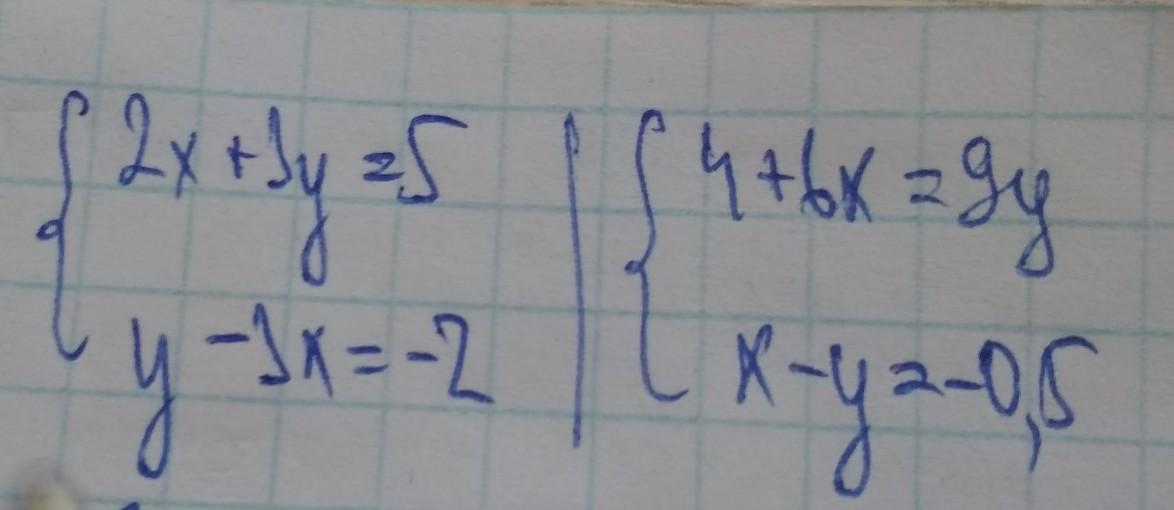 2x + 3y = 5
y - 3x = -2
4 + 6x = 9y
x - y = -0,5